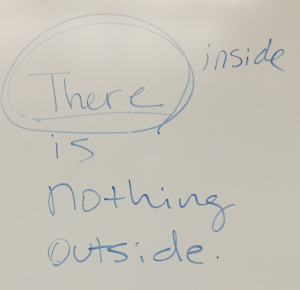 There inside
is
nothing
outside.